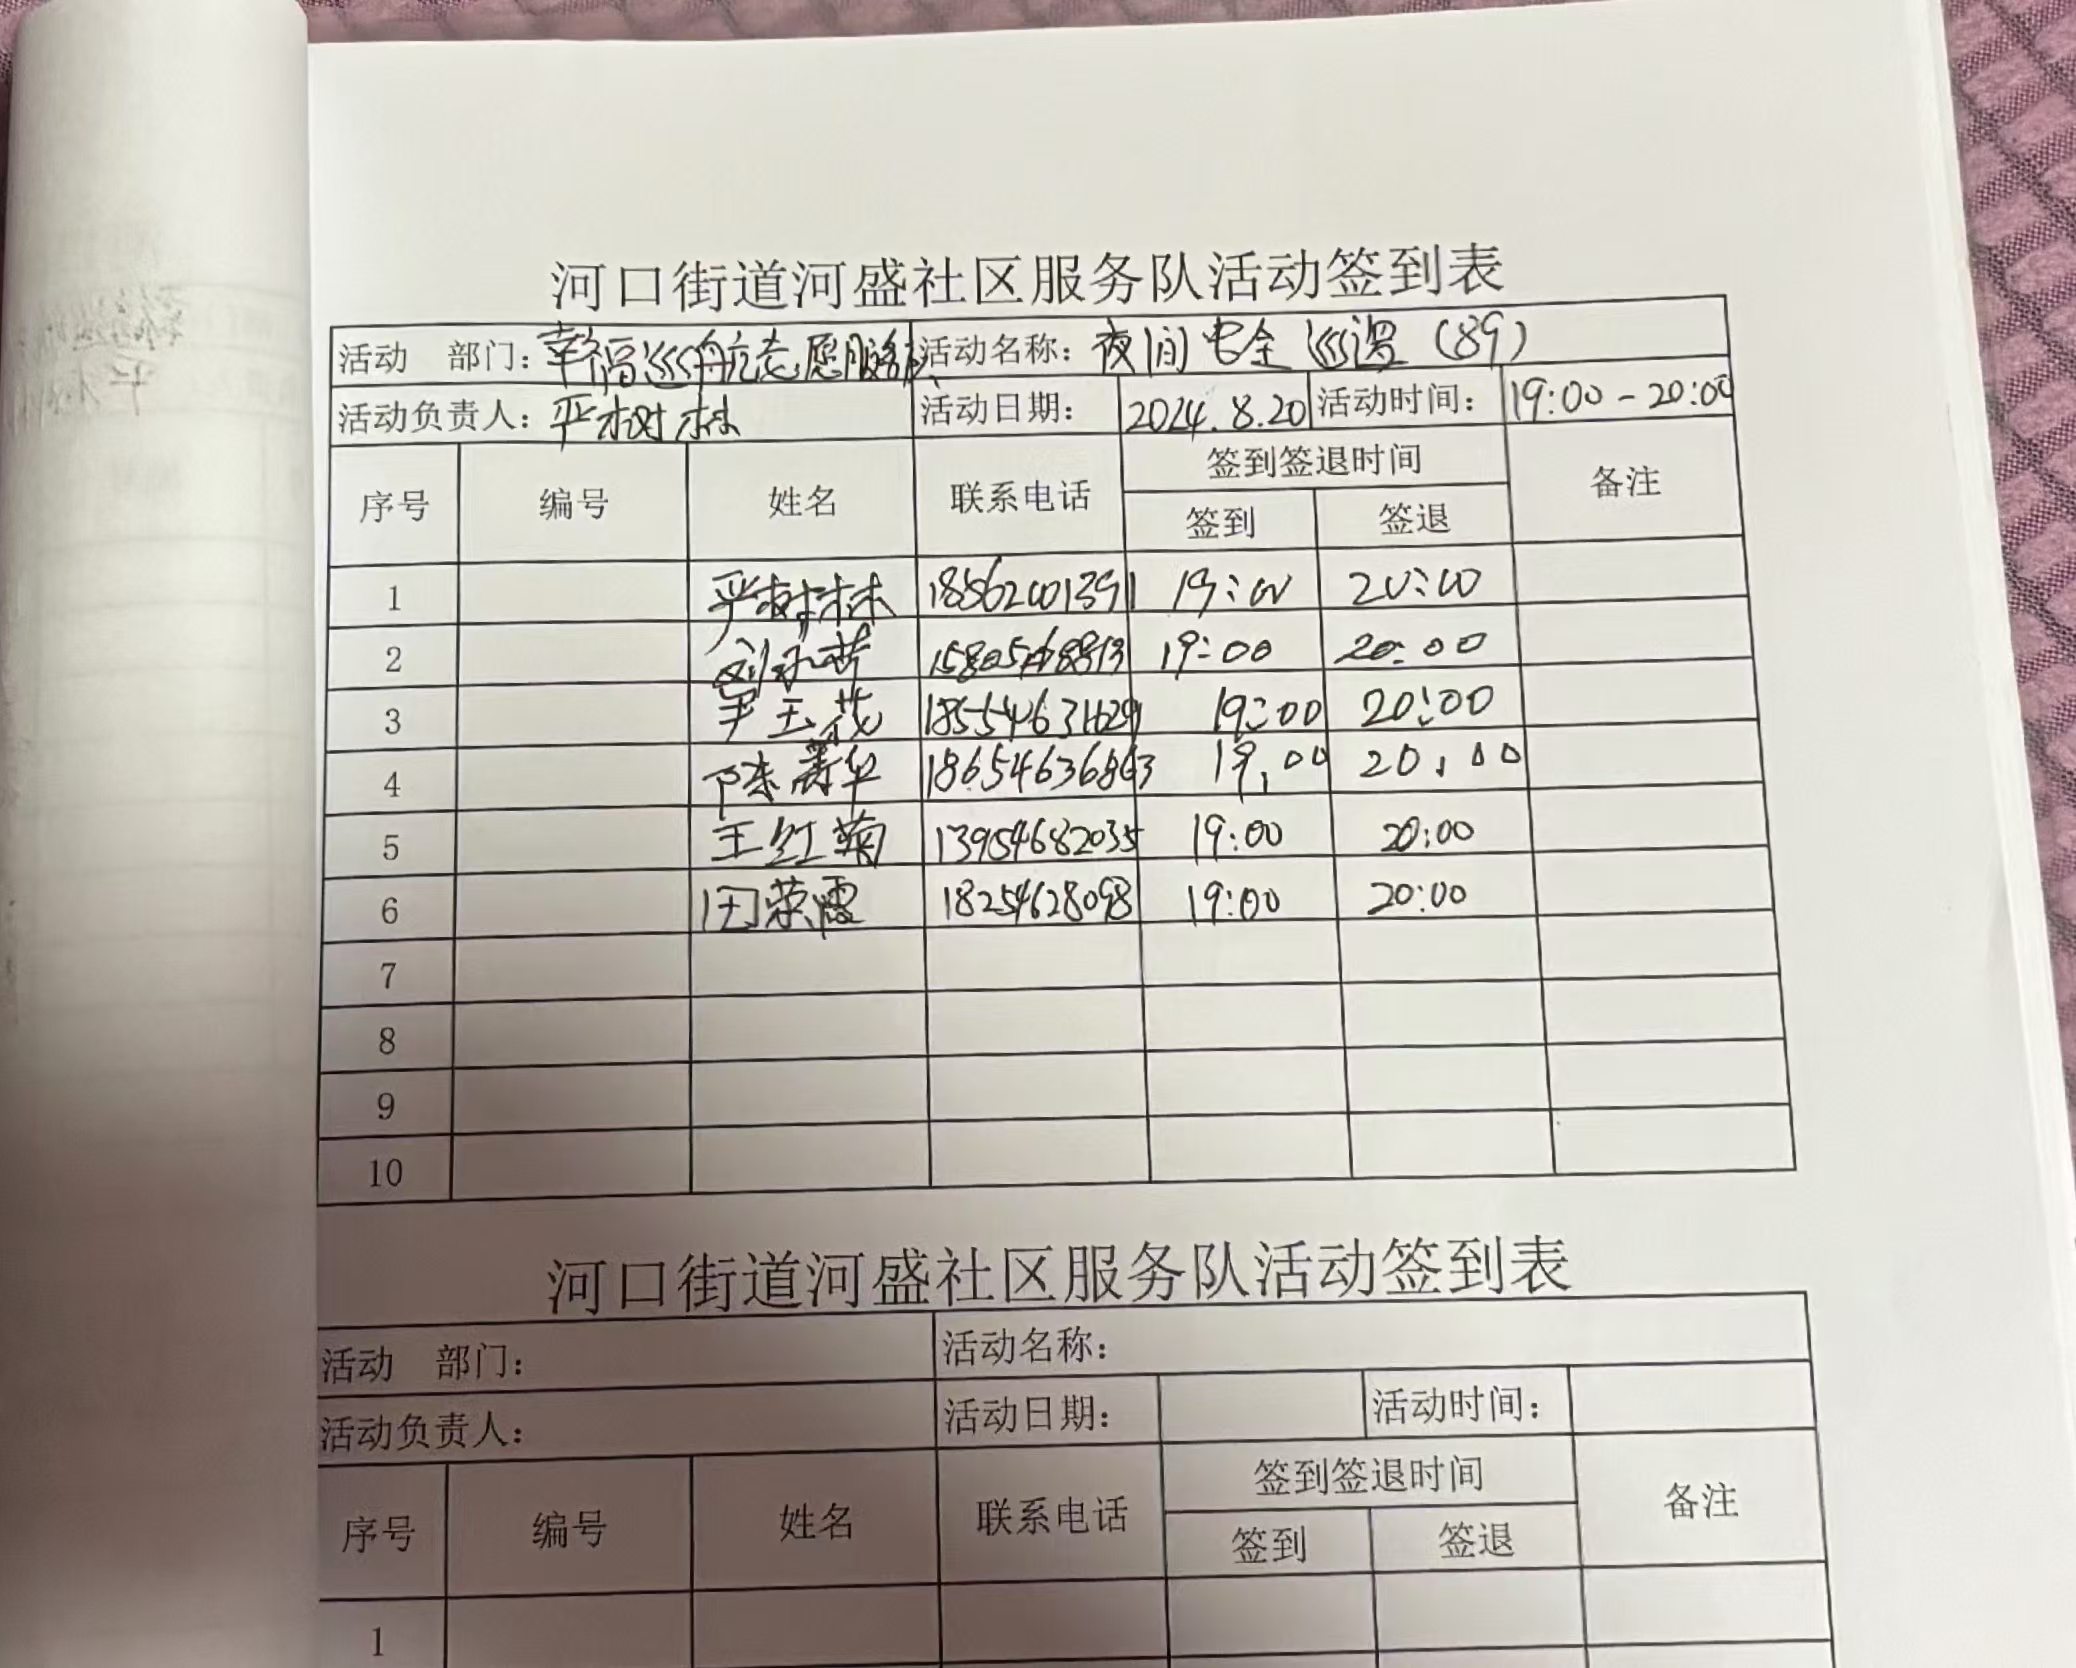 河口街道河盛社区服务队活动签到表
活动 部门：幸福巡航志愿服务队 活动名称：夜间安全巡逻（89）
活动负责人：严树林 活动日期： 2024.8.20 活动时间： 19:00-20:00
序号 编号 姓名 联系电话 签到签退时间 备注
签到 签退
1 严树林 18562001391 19:00 20:00
2 19:00 20:00
3 18554631629 19:00 20:00
4 19:00 20:00
5 王红菊 13954682035 19:00 20:00
6 田荣霞 18254628098 19:00 20:00
7
8
9
10
河口街道河盛社区服务队活动签到表
活动 部门： 活动名称：
活动负责人： 活动日期： 活动时间：
序号 编号 姓名 联系电话 签到签退时间 备注
签到 签退
1